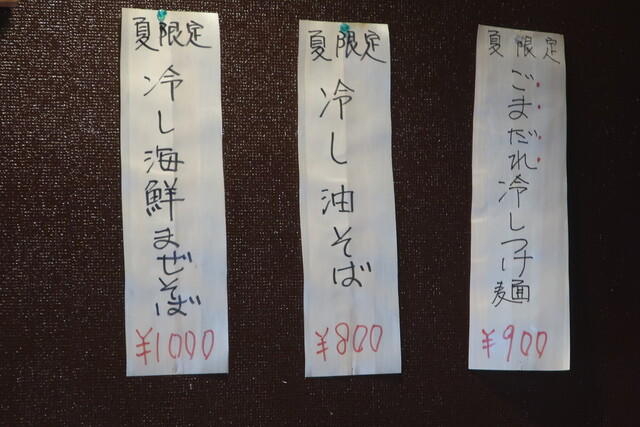 夏限定
冷し海鮮まぜそば
¥1000
夏限定
冷し油そば
¥800
夏限定
ごまだれ冷しつけ麺
¥900